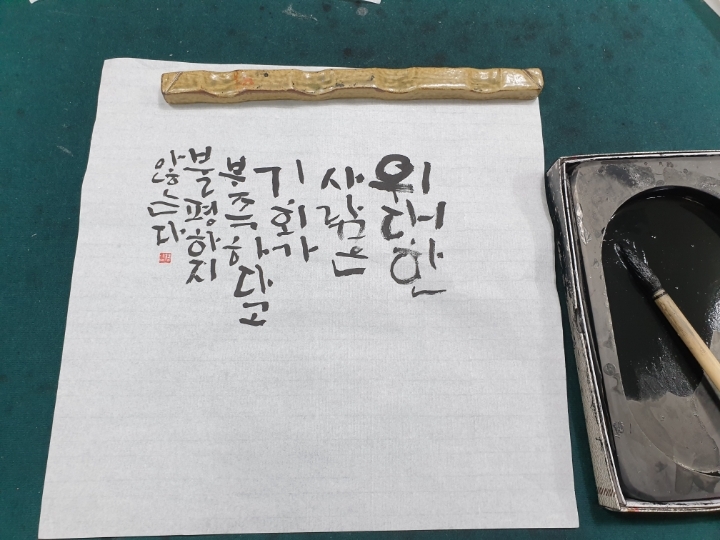 위대한
사람은
기회가
부족하다고
불평하지
않는다